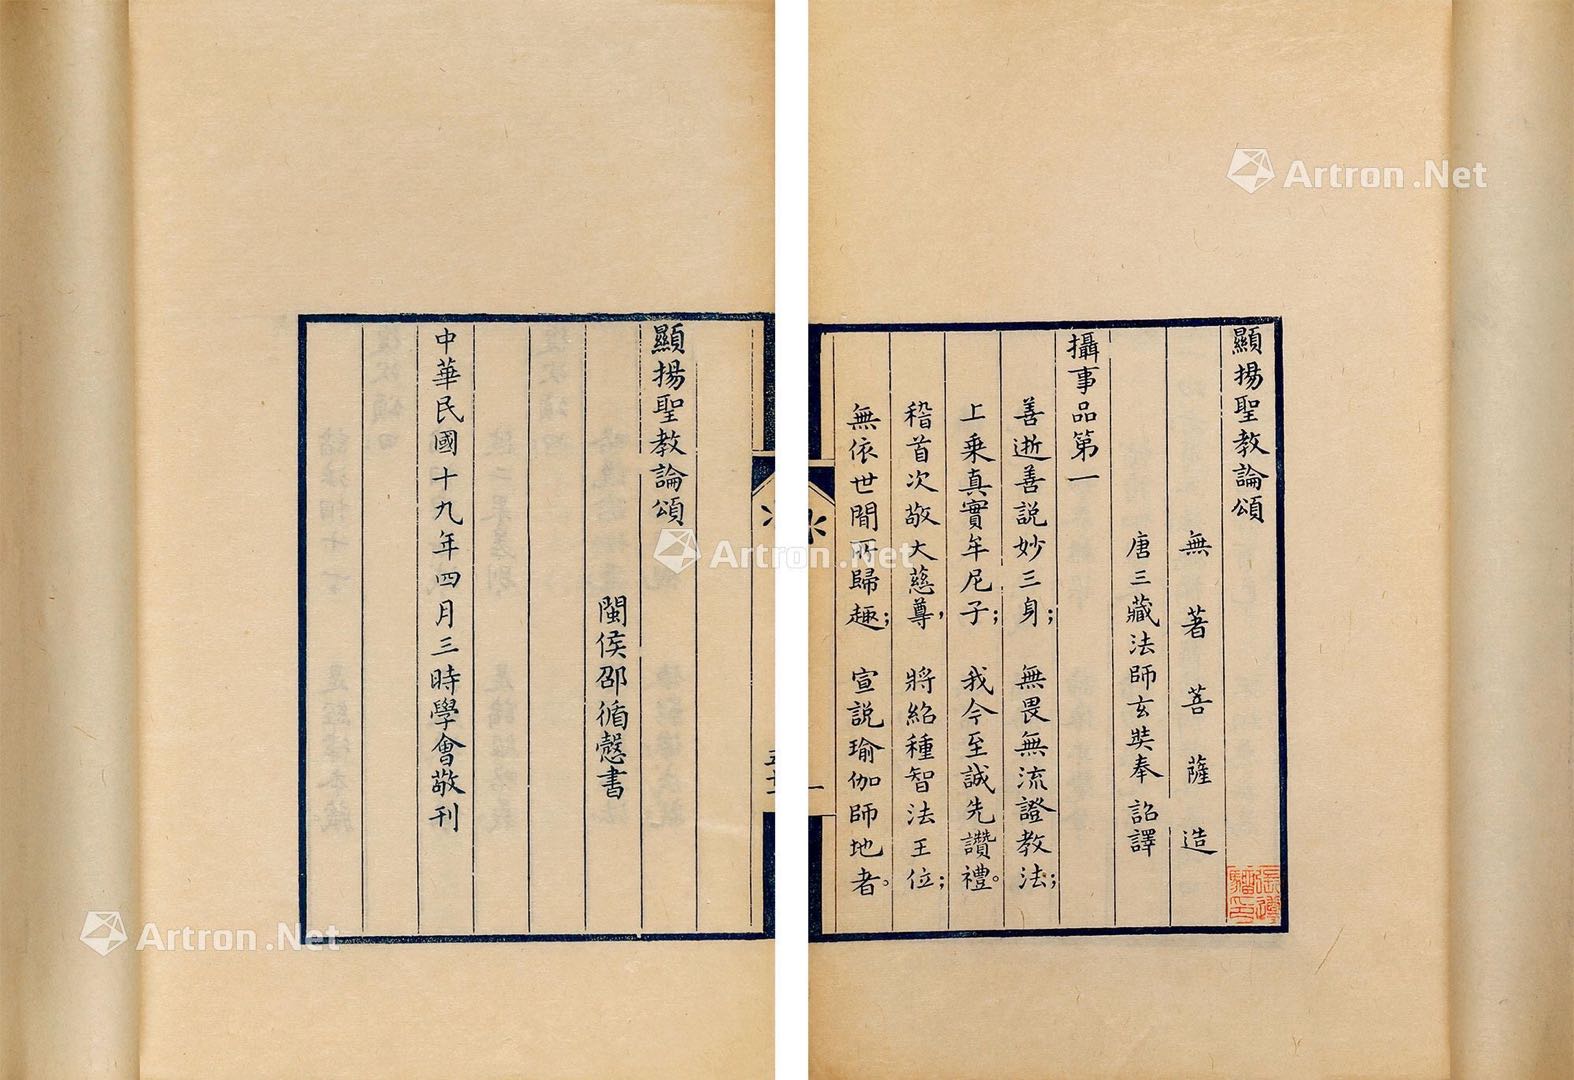 顯揚聖教論頌
無著菩薩造
唐三藏法師玄奘奉詔譯
攝事品第一
善逝善説妙三身； 無畏無流證教法；
上乘真實牟尼子； 我今至誠先讚禮。
稽首次敬大慈尊， 將紹種智法王位；
無依世間所歸趣； 宣説瑜伽師地者。
一
顯揚聖教論頌
閩侯邵循愨書
中華民國十九年四月三時學會敬刊
Artron.Net
Artron.Net
Artron.Net